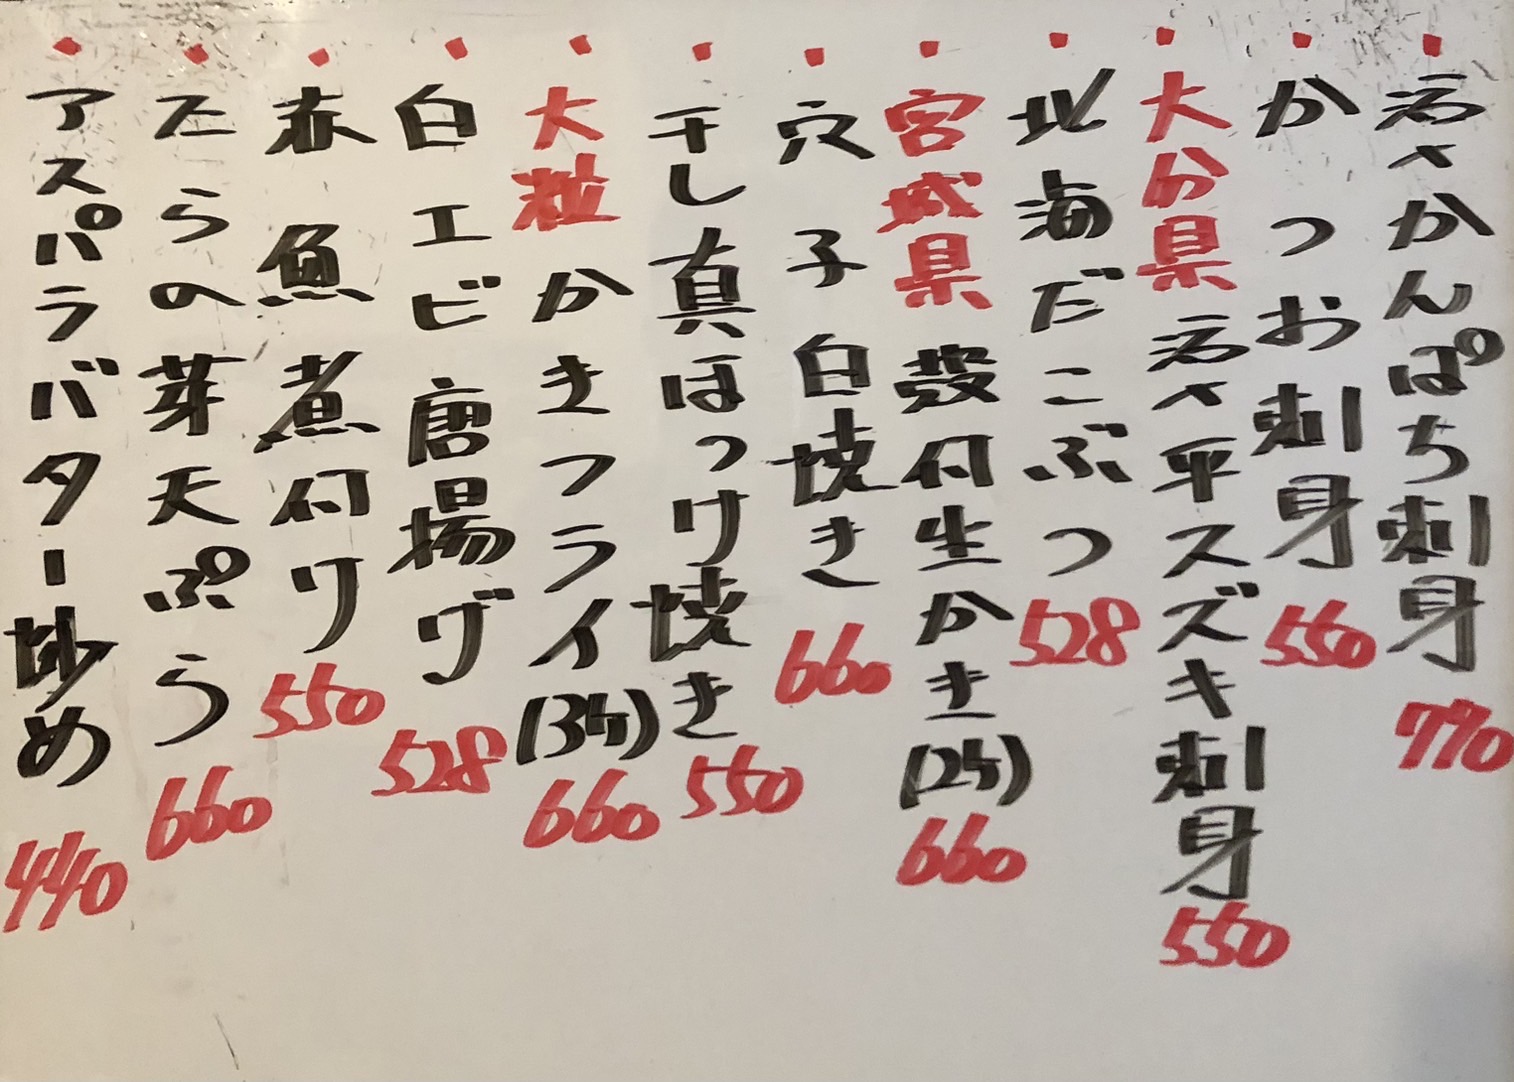 活〆かんぱち刺身 770
かつお刺身 550
大分県 活〆平スズキ刺身 550
北海だこぶつ 528
宮城県 殻付生かき(2ケ) 660
穴子白焼き 660
干し真ほっけ焼き 550
大粒かきフライ(3ケ) 660
白エビ唐揚げ 528
赤魚煮付け 550
たらの芽天ぷら 660
アスパラバター炒め 440